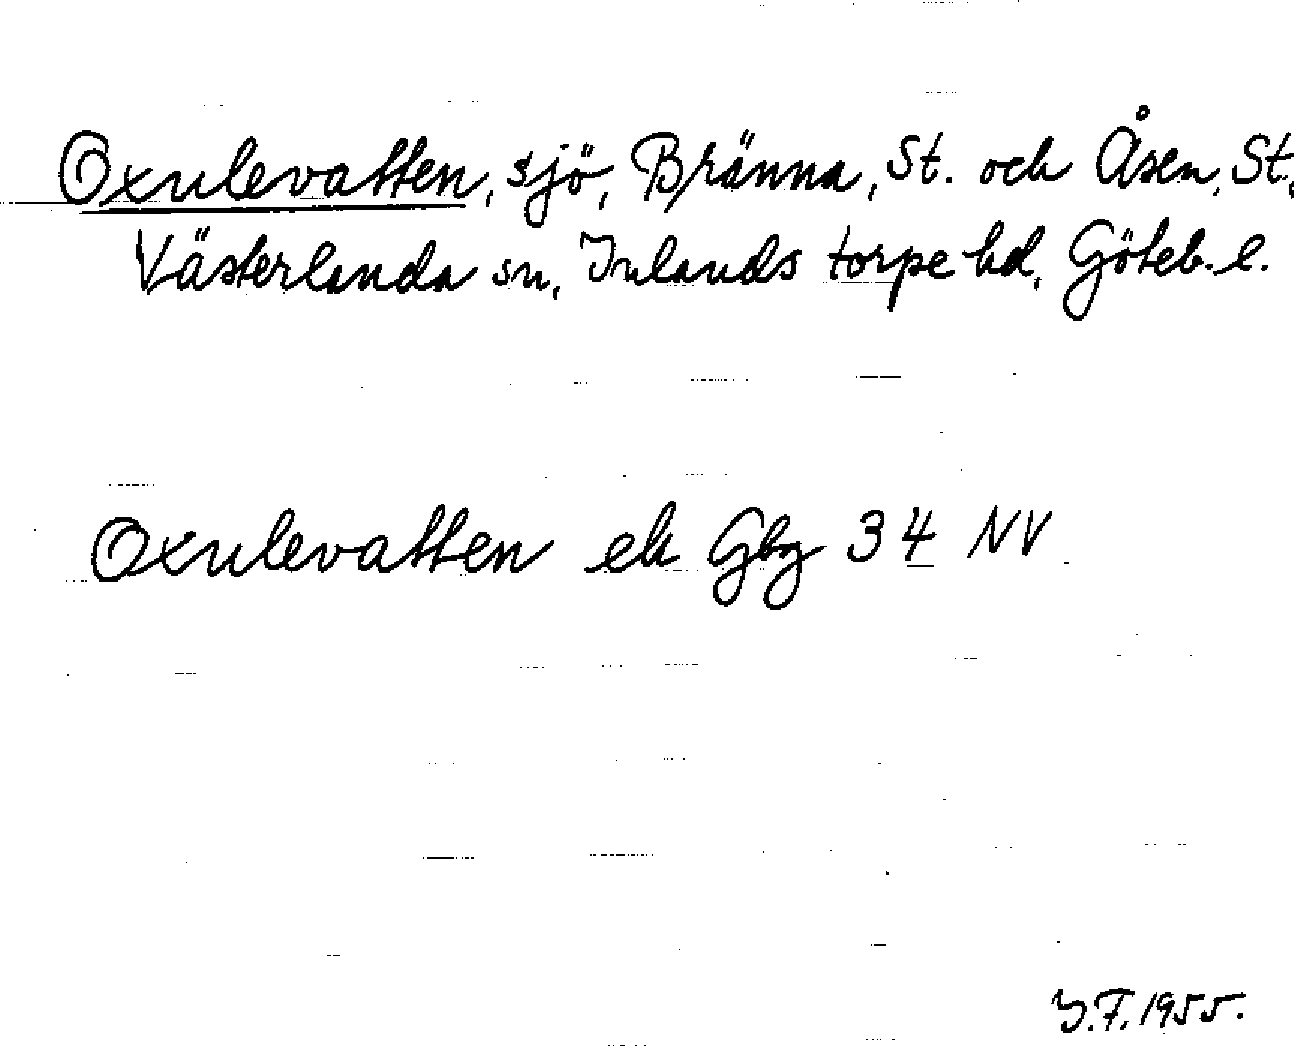 Oxulevatten, sjö, Bränna, St. och Åsen, St.,
Västerlanda sn, Inlands torpe hd, Göteb. l.
Oxulevatten ek Gbg 34 NV
Y.F. 1955.